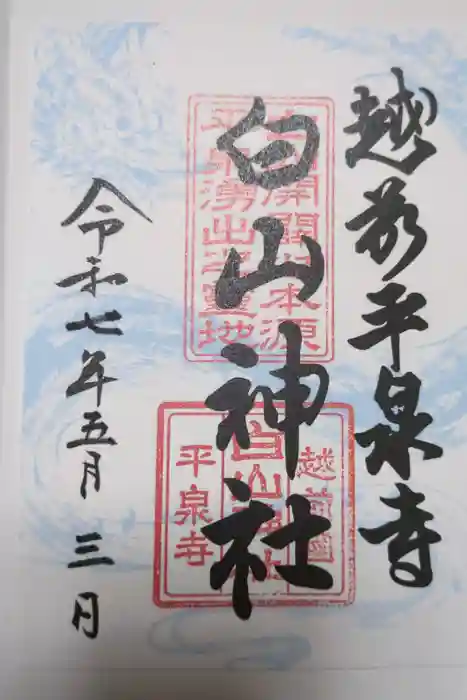 越前平泉寺
白山神社
令和七年五月三日
平泉湧出之霊地
越前國
白山神社
平泉寺